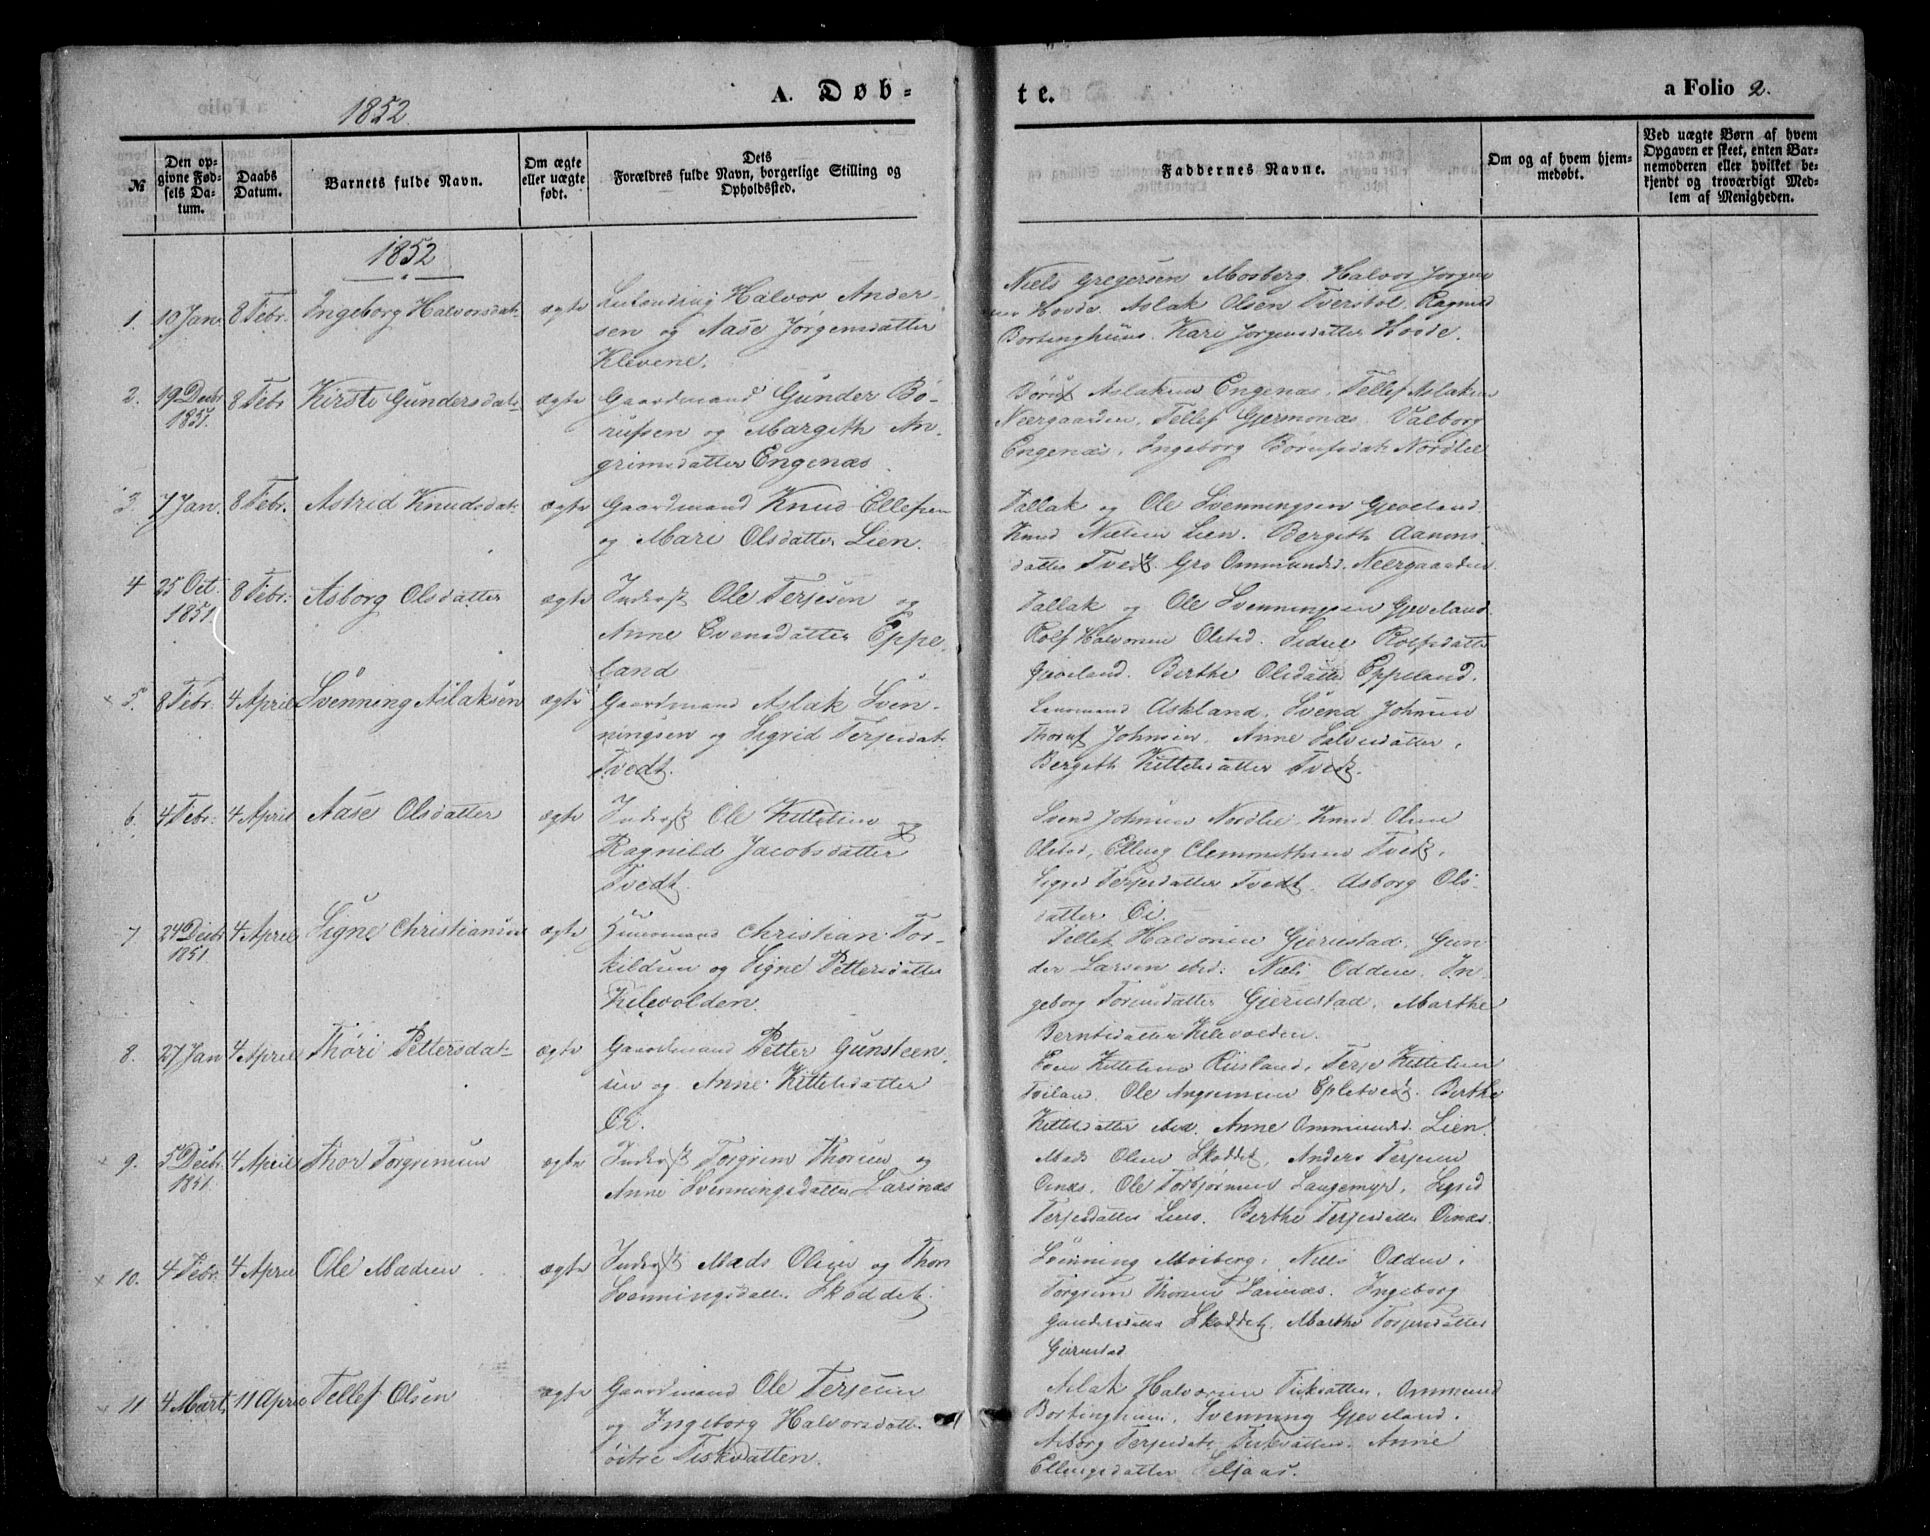 1852
A. Døb-
te.
a Folio 2.
№
Den op-
givne Fød-
sels Da-
tum.
Daabs
Datum.
Barnets fulde Navn.
Om ægte
eller uægte
født.
Dets
Forældres fulde Navn, borgerlige Stilling og
Opholdssted.
Faddernes Navne.
Om og af hvem hjem-
medøbt.
Ved uægte Børn af hvem
Opgaven er skeet, enten Bar-
nemoderen eller hvilket be-
kjendt og troværdigt Med-
lem af Menigheden.
1852
1. 10 Jan. 8 Febr. Ingeborg Halvorsdat. ægte Halvor Ander-
sen og Aase Jørgensdatter
Klevene.
Niels Gregersen Mosberg. Halvor Jorgen
Hovde. Aslak Olsen Tveitstol. Ragnild
Bortinghuus. Kari Jorgensdatter Hovde.
2. 19 Decbr 1851. 8 Febr Kirste Gundersdat. ægte Gaardmand Gunder Bø-
rufsen og Margith An-
grimsdatter Engenæs.
Børuf Aslaksen Engenæs, Tellef Aslaksen
Neergaarden, Tellef Gjermonæs. Valborg
Engenæs, Ingeborg Børufsdat. Nordlie
3. 7 Jan. 8 Febr. Astrid Knudsdat. ægte Gaardmand Knud Ellefsen
og Mari Olsdatter Lien.
Tallak og Ole Svenningsen Gjeveland.
Knud Nielsen Lien. Bergith Aamns-
datter Tvedt. Gro Ommundsd. Neergaarden
4 25 Oct. 1851 8 Febr. Asborg Olsdatter ægte Inderst Ole Terjesen og
Anne Evensdatter Eppe-
land
Tallak og Ole Svenningsen Gjeveland
Rolf Halvorsen Olstad. Sidsel Rolfsdatter
Gjeveland. Berthe Olsdatter Eppeland.
5. 8 Febr. 4 April Svenning Aslaksen ægte Gaardmand Aslak Sven-
ningsen og Sigrid Terjesdat.
Tvedt.
Lensmand Askland. Svend Johnsen
Thoruf Johnsen. Anne Salvesdatter.
Bergith Kittelsdatter Tvedt.
6. 4 Febr. 4 April Aase Olsdatter ægte Inderst Ole Kittelsen og
Ragnild Jacobsdatter
Tvedt.
Svend Johnsen Nordlie. Knud Olsen
Olstad, Elling Clemmetsen Tvedt.
Sigrid Terjesdatter Tvedt. Asborg Ols-
datter Ei.
7 24 Decbr 1851. 4 April Signe Christiansen ægte Huusmand Christian Tor-
kildsen og Signe Pettersdatter
Kilevolden.
Tellef Halvorsen Gjerustad. Gun-
der Larsen ibid. Niels Odden. In-
geborg Torunsdatter Gjerustad. Marthe
Berntsdatter Kilevolden.
8. 27 Jan 4 April Thóri Pettersdat- ægte Gaardmand Petter Gunsteen-
sen og Anne Kittelsdatter
Ei.
Even Kittelsen Risland, Terje Kittelsen
Ole Angrimsen Epletvedt. Berthe
Kittelsdatter Anne Ommundsd. Lien.
9. 5 Decbr. 1851. 4 April Thor Torgrimsen ægte Inderst Torgrim Thorsen og
Anne Svenningsdatter Larsnæs
Mads Olsen Skoddet, Anders Terjesen
Ornæs. Ole Torbjørnsen Langemyr. Sigrid
Terjesdatter Lien. Berthe Terjesdatter Ornæs.
10. 4 Febr. 4 April Ole Madsen ægte Inderst Mads Olsen og Thore
Svenningsdatter Skoddet.
Svenning Mosberg. Niels Odden.
Torgrim Thorsen Larsnæs. Ingeborg
Gundersdatter Skoddet. Marthe Torjersdatter
Gjerustad
11 4 Marts 11 April Tellef Olsen ægte Gaardmand Ole Terjesen
og Ingeborg Halvorsdatter
øitre Fiskvatten.
Aslak Halvorsen Fiskvatten. Ommund
Bortinghuus. Svenning Gjeveland.
Asborg Terjesdat. Fiskvatten. Anne
Ellingsdatter Seljaas.